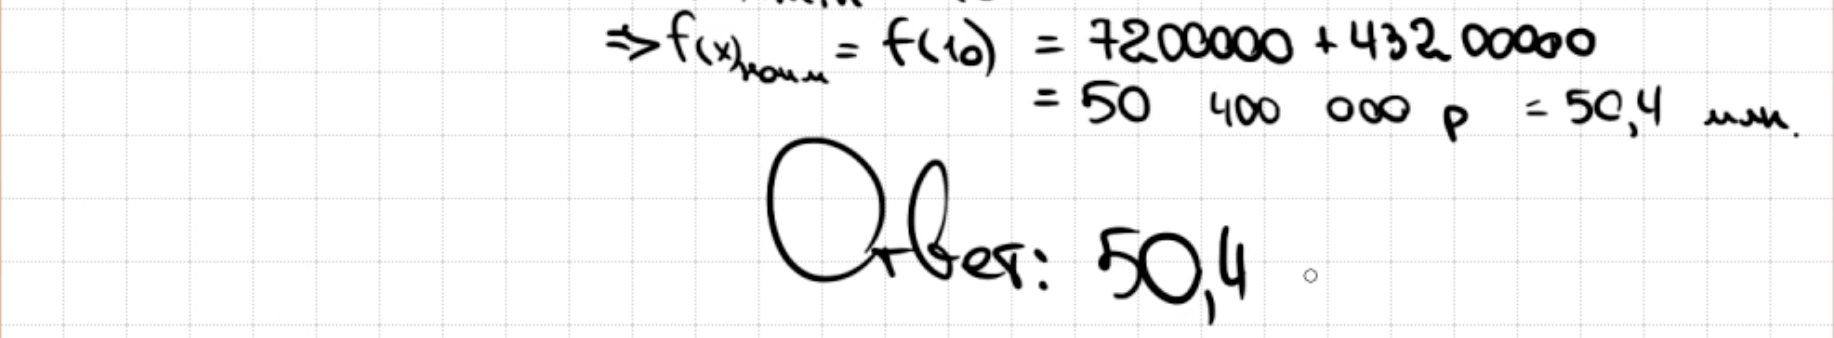 ⇒ f(x)наим = f(10) = 7200000 + 43200000
= 50 400 000 р = 50,4 млн.
Ответ: 50,4